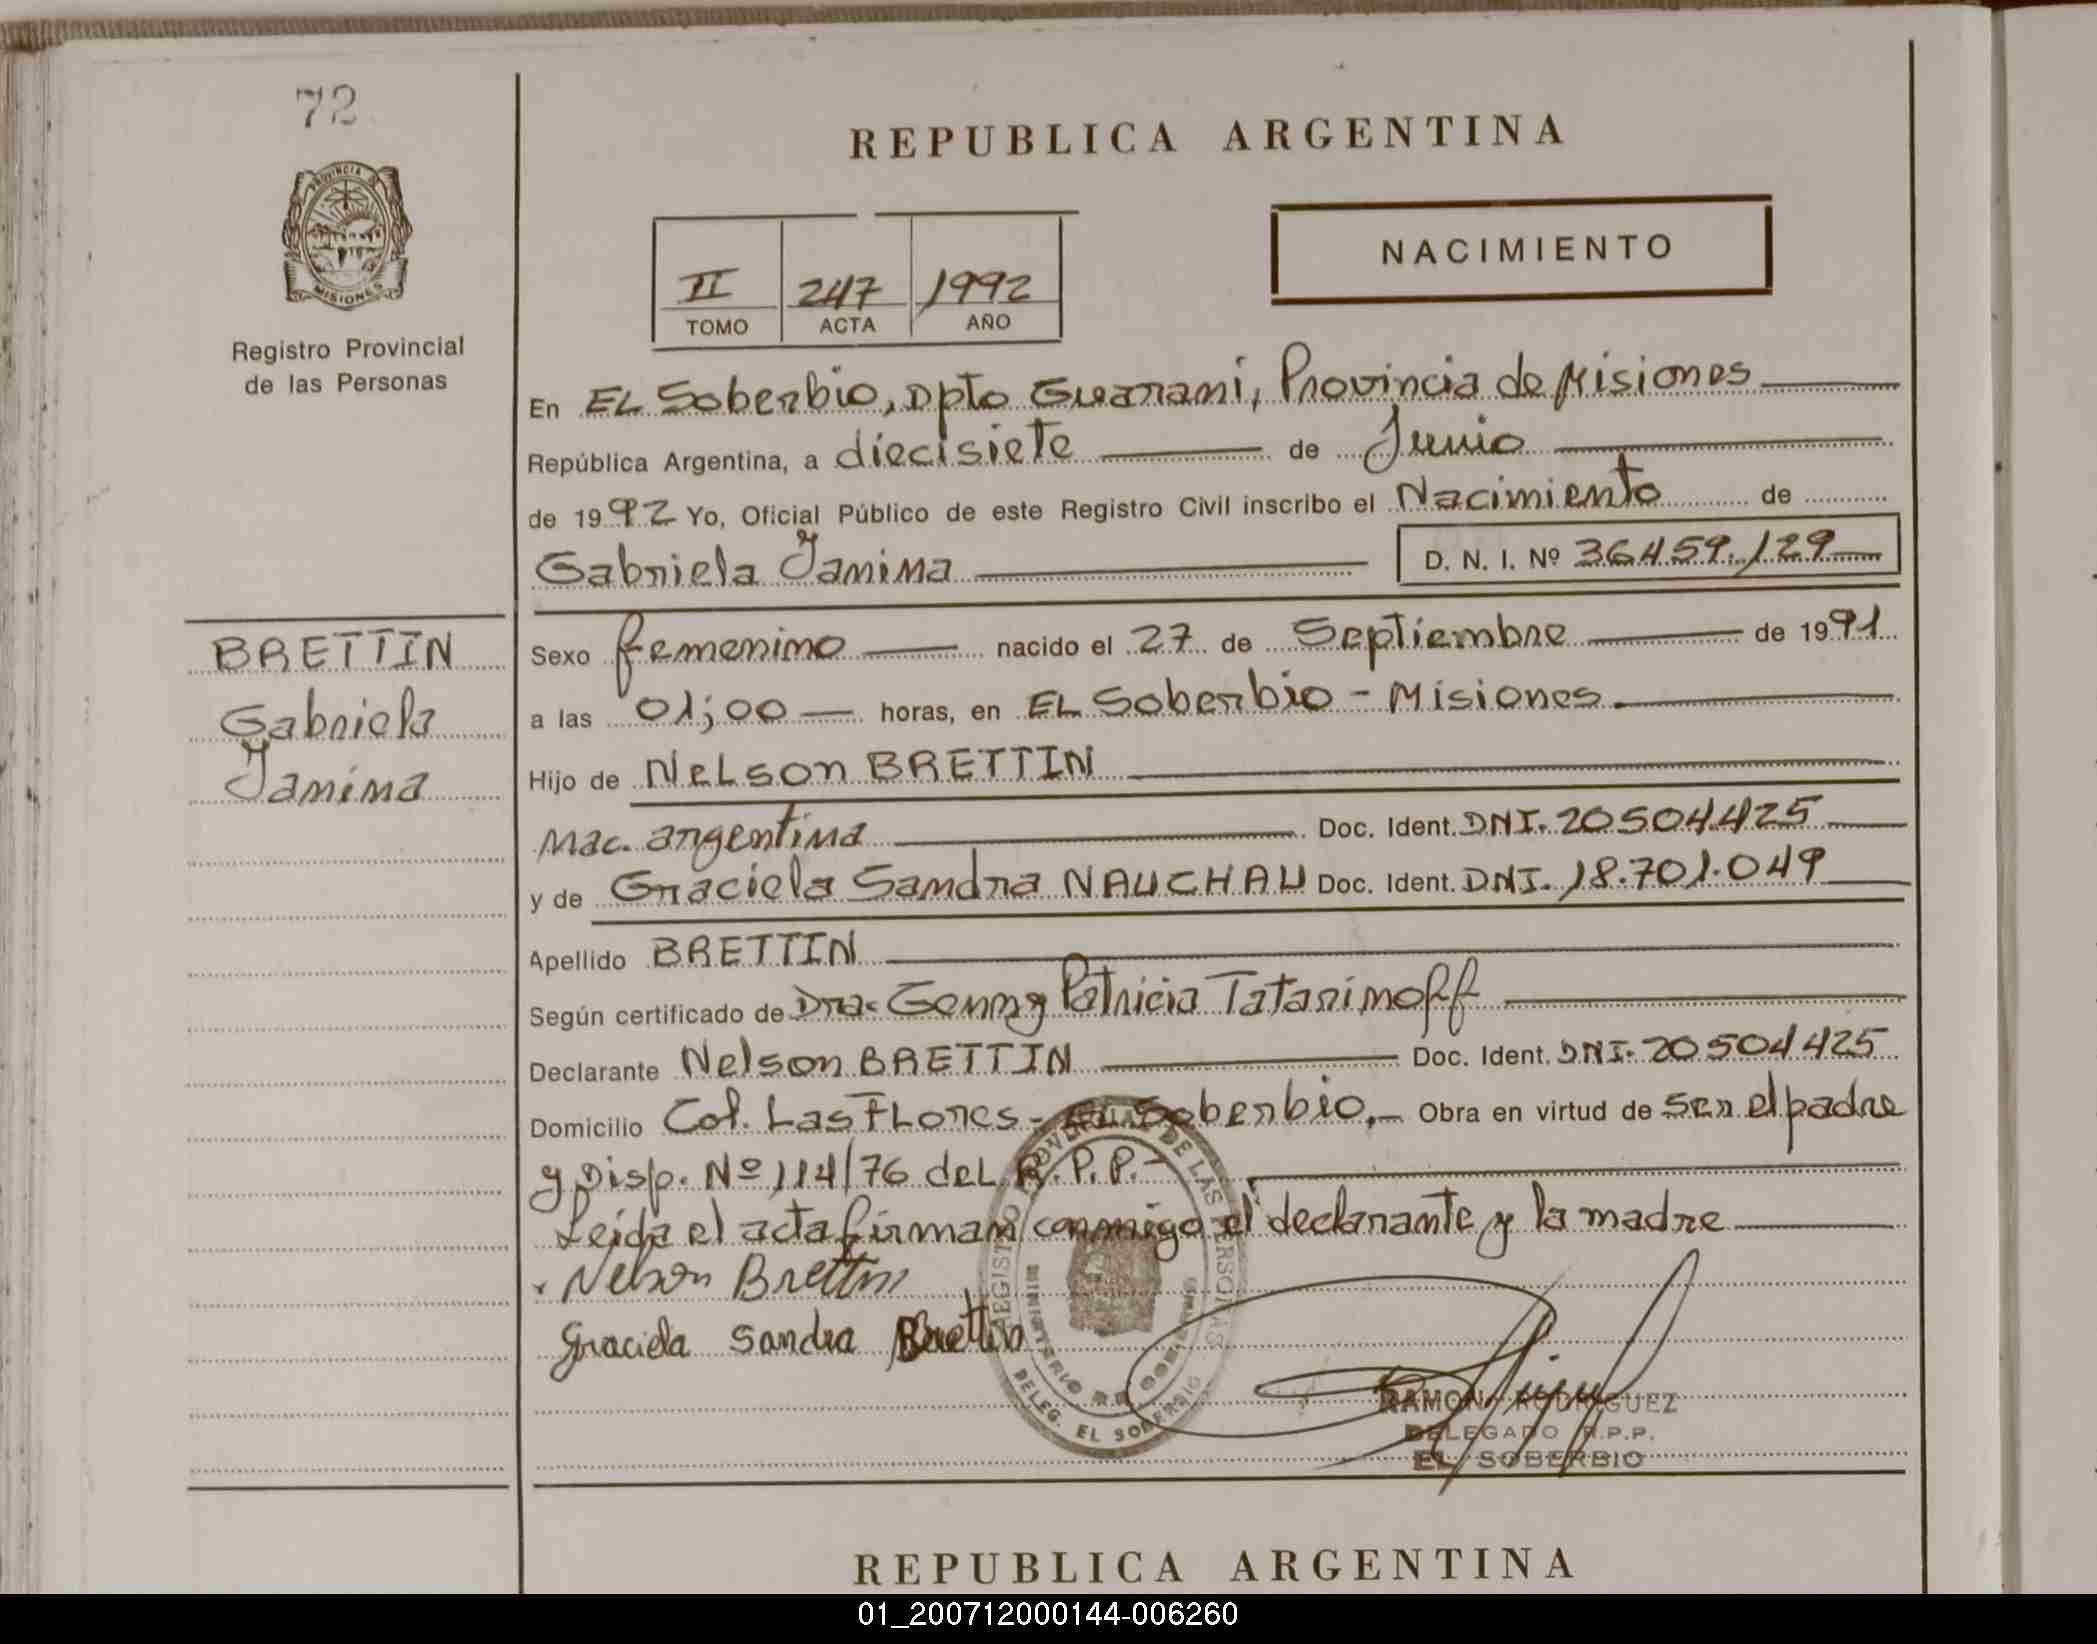 72
PROVINCIA DE
MISIONES
Registro Provincial
de las Personas
REPUBLICA ARGENTINA
NACIMIENTO
II 247 1992
TOMO ACTA AÑO
En EL Soberbio, Dpto Guarani, Provincia de Misiones
República Argentina, a diecisiete de Junio
de 1992 Yo, Oficial Público de este Registro Civil inscribo el Nacimiento de
Gabriela Janina D. N. I. Nº 36.459.129
BRETTIN
Gabriela
Janina
Sexo femenino nacido el 27 de Septiembre de 1991
a las 01;00 horas, en EL Soberbio - Misiones.
Hijo de Nelson BRETTIN
Nac. argentina Doc. Ident. DNI. 20504425
y de Graciela Sandra NAUCHAU Doc. Ident. DNI. 18.701.049
Apellido BRETTIN
Según certificado de Dra. Genny Patricia Tatarinoff
Declarante Nelson BRETTIN Doc. Ident. DNI. 20504425
Domicilio Col. Las FLores - EL Soberbio.- Obra en virtud de ser el padre
y Disp. Nº 114/76 deL R.P.P.-
Leida el acta firman conmigo el declarante y la madre
Nelson Brettin
Graciela Sandra Brettin
REGISTRO PROVINCIAL DE LAS PERSONAS
MINISTERIO DE GOBIERNO
DELEG. EL SOBERBIO
RAMON RODRIGUEZ
DELEGADO R.P.P.
EL SOBERBIO
REPUBLICA ARGENTINA
01_200712000144-006260